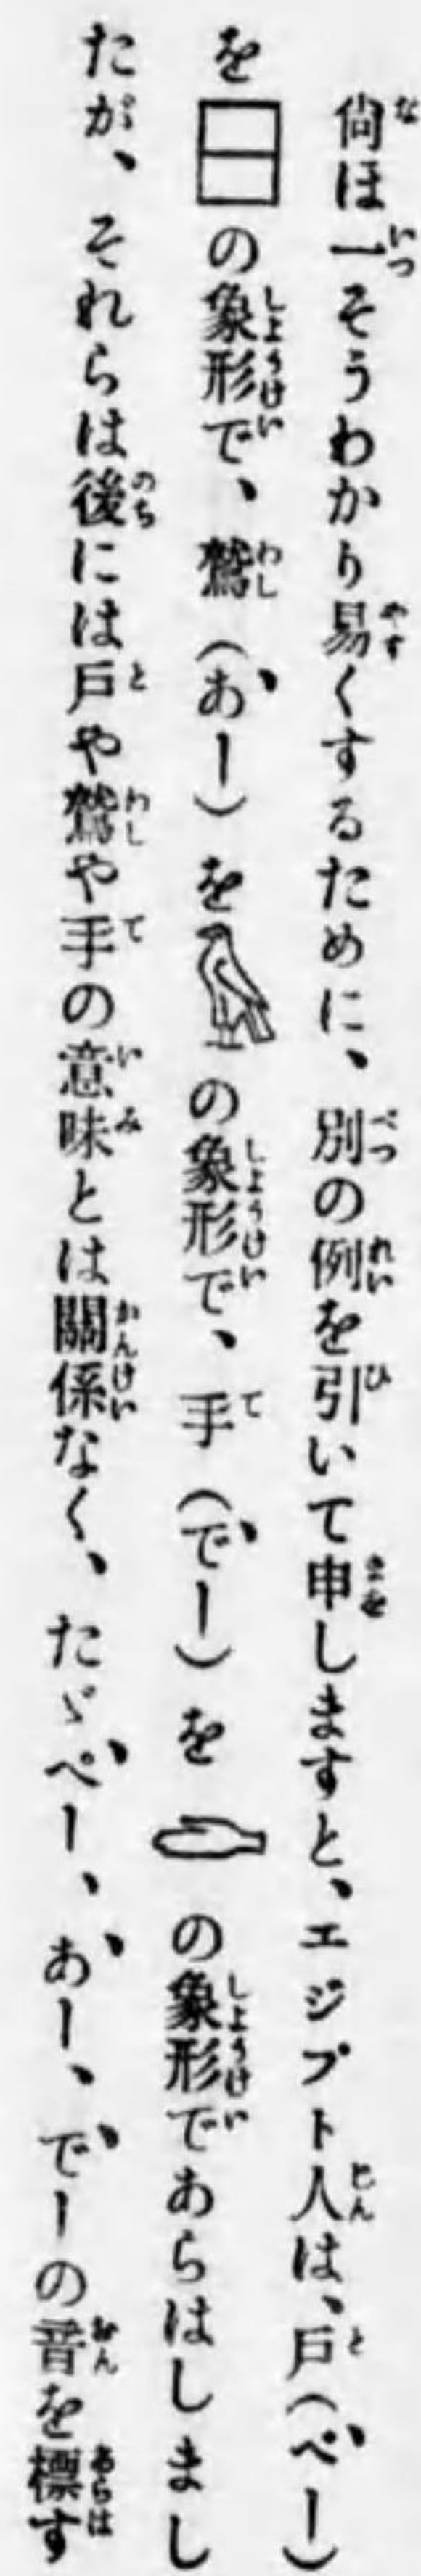 尙ほ一そうわかり易くするために、別の例を引いて申しますと、エジプト人は、戶(ぺー)
をの象形で、鷲(あー)をの象形で、手(でー)をの象形であらはしまし
たが、それらは後には戶や鷲や手の意味とは關係なく、たゞぺー、あー、でーの音を標す